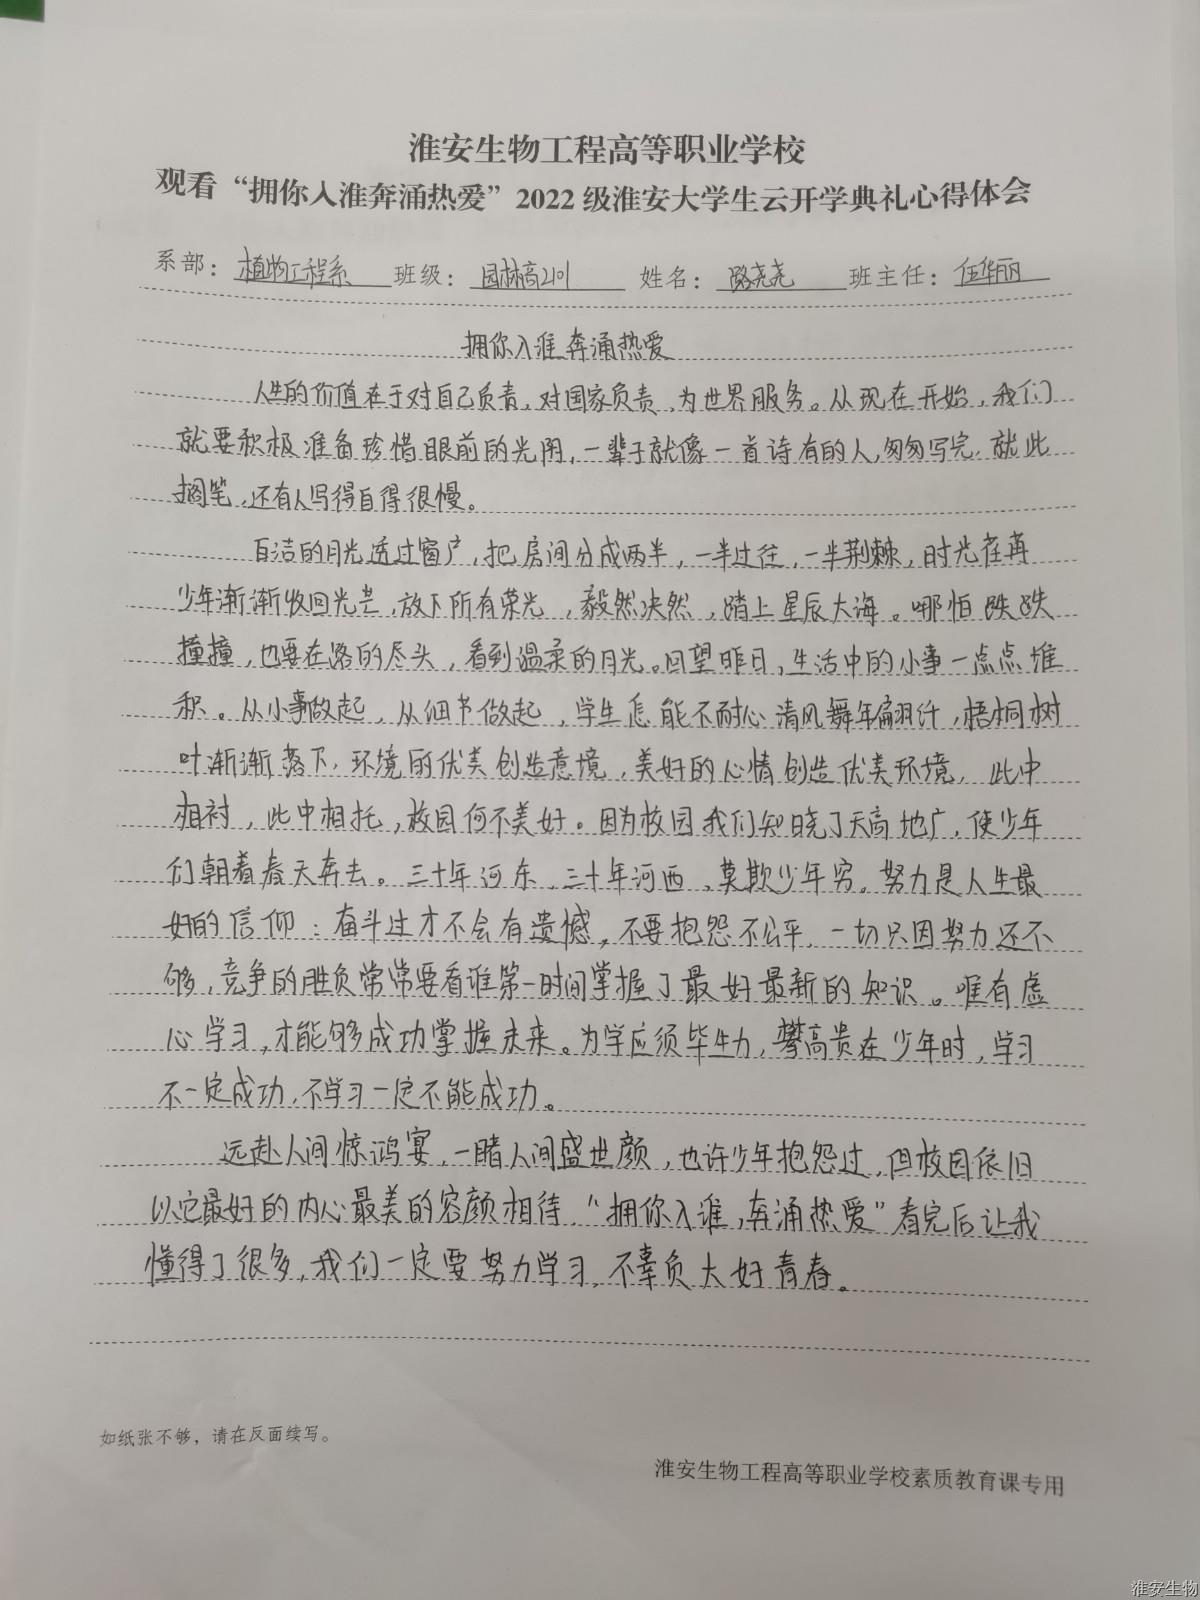 淮安生物工程高等职业学校
观看“拥你入淮奔涌热爱”2022级淮安大学生云开学典礼心得体会
系部：植物工程系 班级：园林高211 姓名：路尧尧 班主任：任华丽
拥你入淮奔涌热爱
人生的价值在于对自己负责，对国家负责，为世界服务。从现在开始，我们
就要积极准备珍惜眼前的光阴，一辈子就像一首诗有的人，匆匆写完，就此
搁笔，还有人写得自得很慢。
白洁的月光透过窗户，把房间分成两半，一半过往，一半荆棘，时光荏苒
少年渐渐收回光芒，放下所有荣光，毅然决然，踏上星辰大海。哪怕跌跌
撞撞，也要在路的尽头，看到温柔的月光。回望昨日，生活中的小事一点点堆
积。从小事做起，从细节做起，学生怎能不耐心清风舞年翩纤，梧桐树
叶渐渐落下，环境的优美创造意境，美好的心情创造优美环境，此中
相衬，此中相托，校园何不美好。因为校园我们知晓了天高地广，使少年
们朝着春天奔去。三十年河东，三十年河西，莫欺少年穷。努力是人生最
好的信仰：奋斗过才不会有遗憾，不要抱怨不公平，一切只因努力还不
够，竞争的胜负常常要看谁第一时间掌握了最好最新的知识。唯有虚
心学习，才能够成功掌握未来。为学应须毕生力，攀高贵在少年时，学习
不一定成功，不学习一定不能成功。
远赴人间惊鸿宴，一睹人间盛世颜，也许少年抱怨过，但校园依旧
以它最好的内心最美的容颜相待，“拥你入淮，奔涌热爱”看完后让我
懂得了很多，我们一定要努力学习，不辜负大好青春。
如纸张不够，请在反面续写。
淮安生物工程高等职业学校素质教育课专用
淮安生物